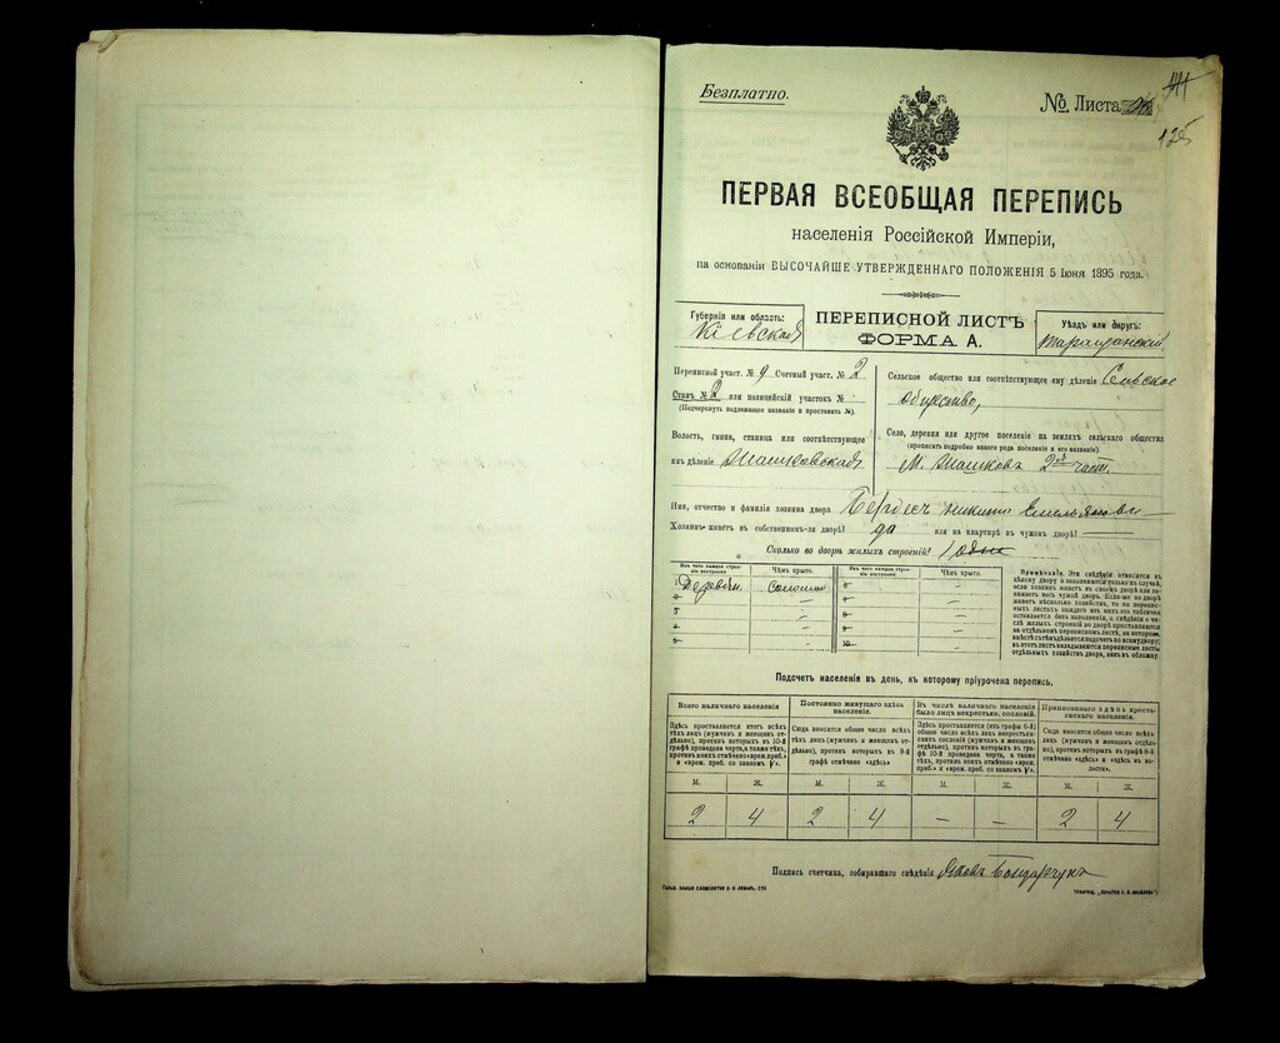 Безплатно.
№ Листа
125
ПЕРВАЯ ВСЕОБЩАЯ ПЕРЕПИСЬ
населенія Россійской Имперіи,
на основаніи ВЫСОЧАЙШЕ УТВЕРЖДЕННАГО ПОЛОЖЕНІЯ 5 Іюня 1895 года.
Губернія или область:
Кіевская
ПЕРЕПИСНОЙ ЛИСТЪ
ФОРМА А.
Уѣздъ или округъ:
Таращанскій
Переписной участ. № 9 Счетный участ. № 2
Станъ № 2 или полицейскій участокъ №
(Подчеркнуть подлежащее названіе и проставить №).
Волость, гмина, станица или соотвѣтствующее
имъ дѣленіе Жашковская
Сельское общество или соотвѣтствующее ему дѣленіе Сельское
общество,
Село, деревня или другое поселеніе на земляхъ сельскаго общества
(прописать подробно какого рода поселеніе и его названіе).
М. Жашковъ 2ая част.
Имя, отчество и фамилія хозяина двора Никити Емельянови
Хозяинъ живетъ въ собственномъ-ли дворѣ? да или на квартирѣ въ чужомъ дворѣ? —
Сколько во дворѣ жилыхъ строеній? 1 одно
Изъ чего каждое строеніе построено. Чѣмъ крыто. Изъ чего каждое строеніе построено. Чѣмъ крыто.
1 Деревян. Соломою 6 –
2 – 7 –
3 – 8 –
4 – 9 –
5 – 10 –
Примѣчаніе. Эти свѣдѣнія относятся къ
цѣлому двору и заполняются только въ случаѣ,
если хозяинъ живетъ въ своемъ дворѣ или занимаетъ
весь чужой дворъ. Если-же во дворѣ
живетъ нѣсколько хозяйствъ, то на переписныхъ
листахъ каждаго изъ нихъ эта табличка
оставляется безъ заполненія, а свѣдѣнія о числѣ
жилыхъ строеній во дворѣ проставляются
на отдѣльномъ переписномъ листѣ, на которомъ
вмѣстѣ съ тѣмъ дѣлается подсчетъ по всему двору;
въ этотъ листъ вкладываются переписные листы
отдѣльныхъ хозяйствъ двора, какъ въ обложку.
Подсчетъ населенія въ день, къ которому пріурочена перепись.
Всего наличнаго населенія
Здѣсь проставляется итогъ всѣхъ
тѣхъ лицъ (мужчинъ и женщинъ отдѣльно),
противъ которыхъ въ 10-й
графѣ проведена черта, а также тѣхъ,
противъ коихъ отмѣчено «врем. преб.»
и «врем. преб. со знакомъ V».
Постоянно живущаго здѣсь
населенія.
Сюда вносится общее число всѣхъ
тѣхъ лицъ (мужчинъ и женщинъ отдѣльно),
противъ которыхъ въ 9-й
графѣ отмѣчено «здѣсь»
Въ числѣ наличнаго населенія
было лицъ некрестьян. сословій.
Здѣсь проставляется (изъ графы 6-й)
общее число всѣхъ лицъ некрестьянскихъ
сословій (мужчинъ и женщинъ
отдѣльно), противъ которыхъ въ графѣ
10-й проведена черта, а также
тѣхъ, противъ коихъ отмѣчено «врем.
преб.» и «врем. преб. со знакомъ V».
Приписаннаго здѣсь крестьянскаго
населенія.
Сюда вносится общее число всѣхъ
лицъ (мужчинъ и женщинъ отдѣльно),
противъ которыхъ въ графѣ 8-й
отмѣчено «здѣсь» и «здѣсь въ волости».
М. Ж. М. Ж. М. Ж. М. Ж.
2 4 2 4 – – 2 4
Подпись счетчика, собиравшаго свѣдѣнія Яковъ Бондарчукъ